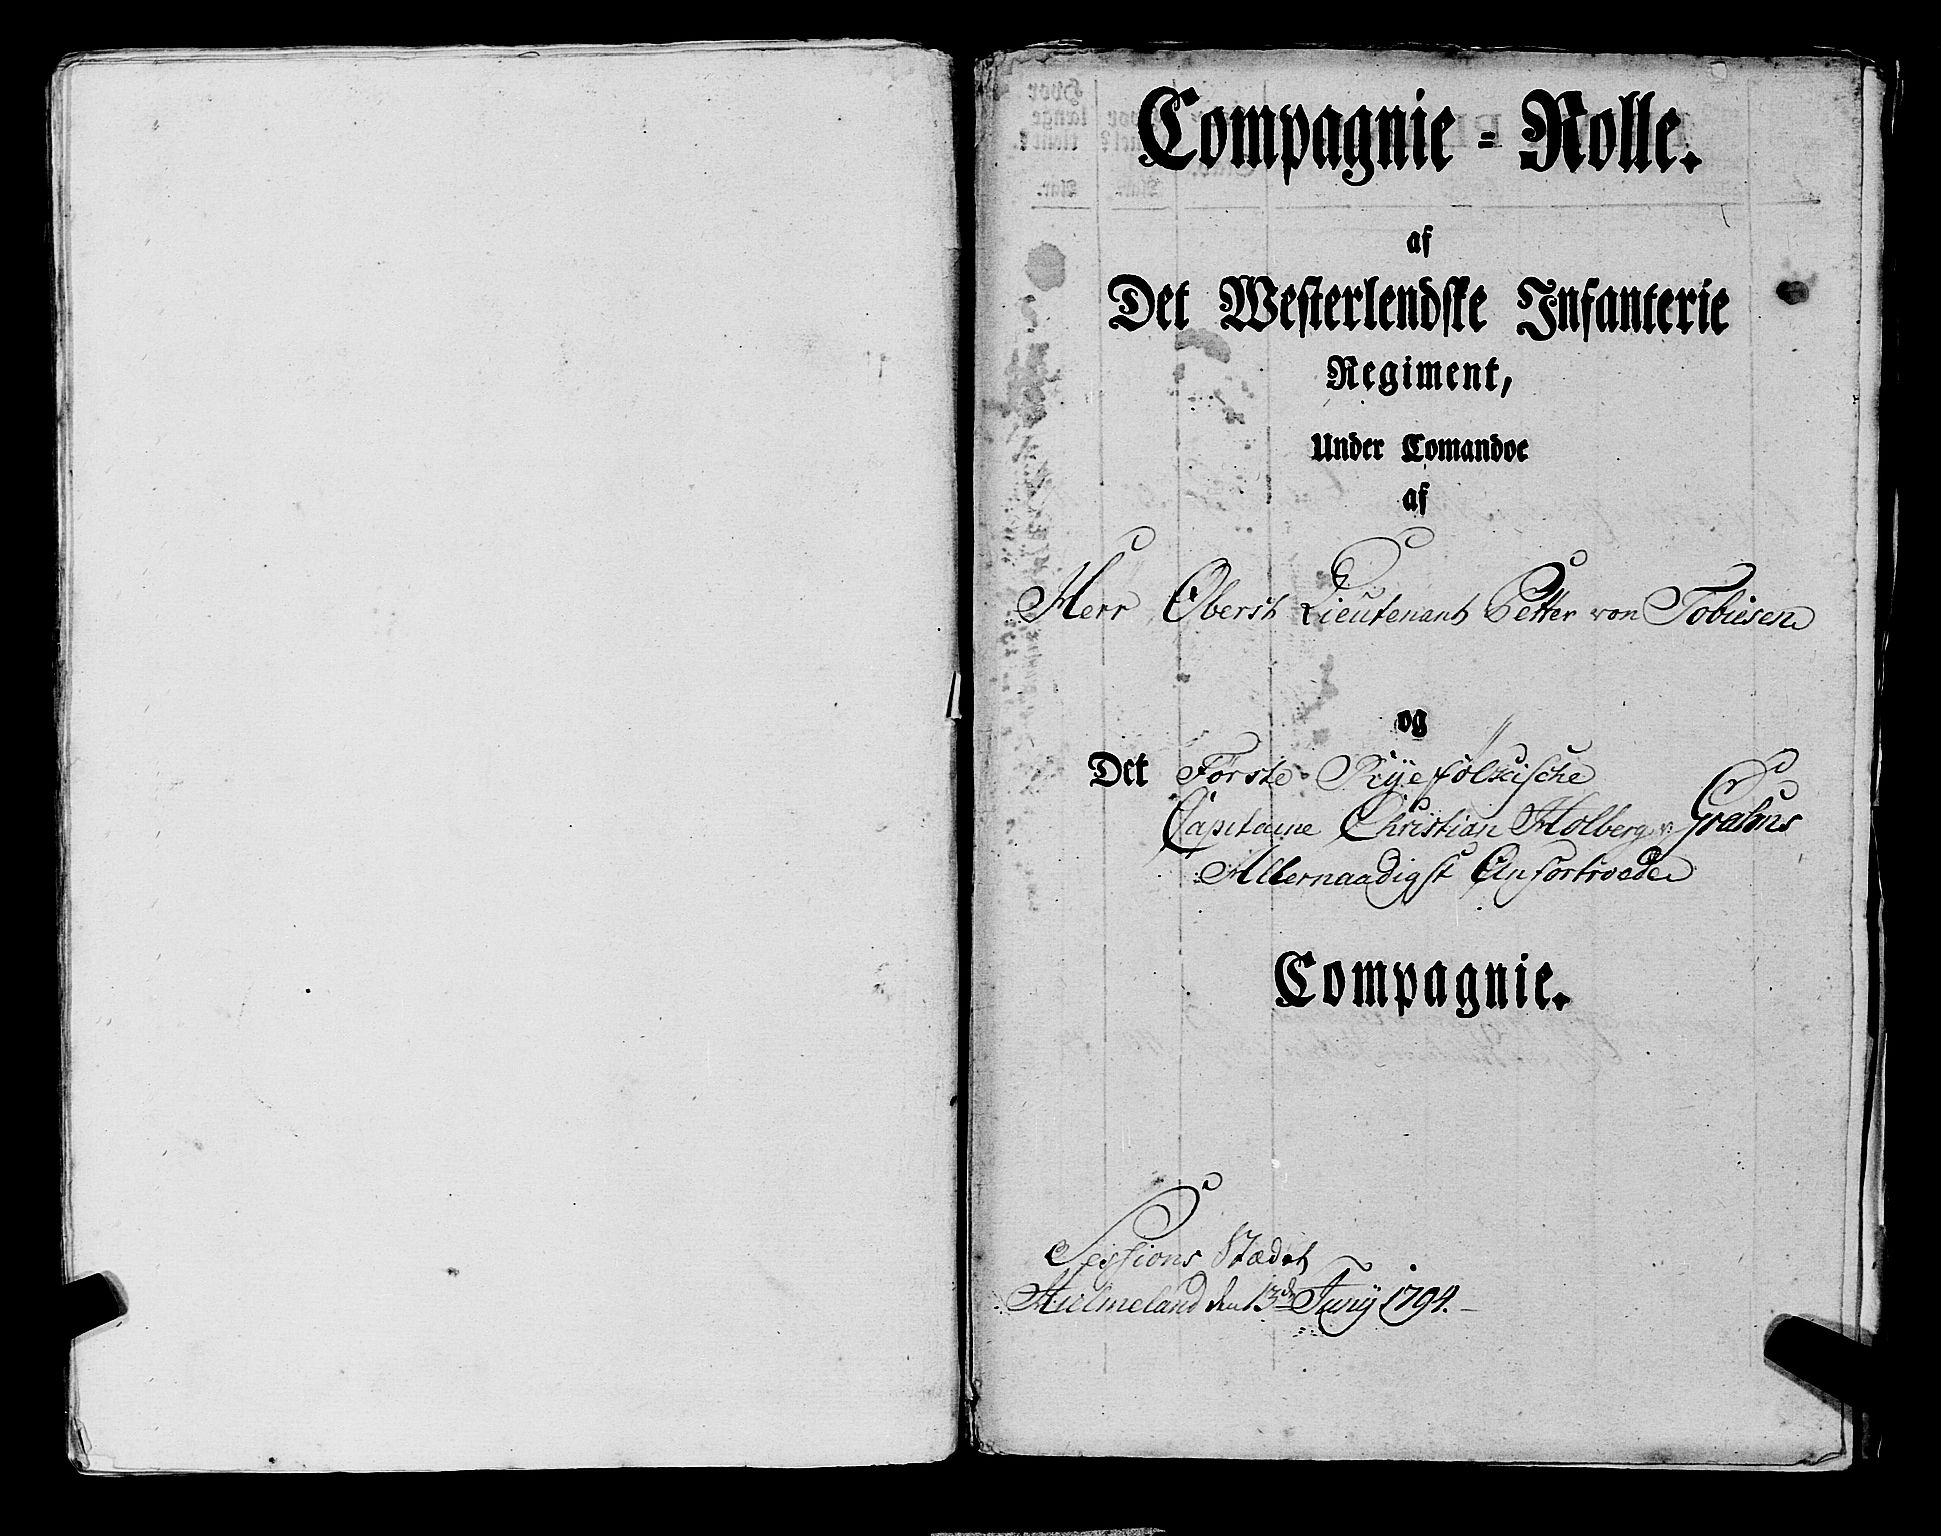 Compagnie = Rolle.
af
Det Westerlendske Infanterie
Regiment,
Under Comandoe
af
Herr Oberst Lieutenant Petter von Tobiesen
og
Det Første Ryefølkische
Capitaine Christian Holberg v: Grabous
Allernaadigst Anfortroede
Compagnie.
Sessions Stædet
Hielmeland den 13de Junij 1794.